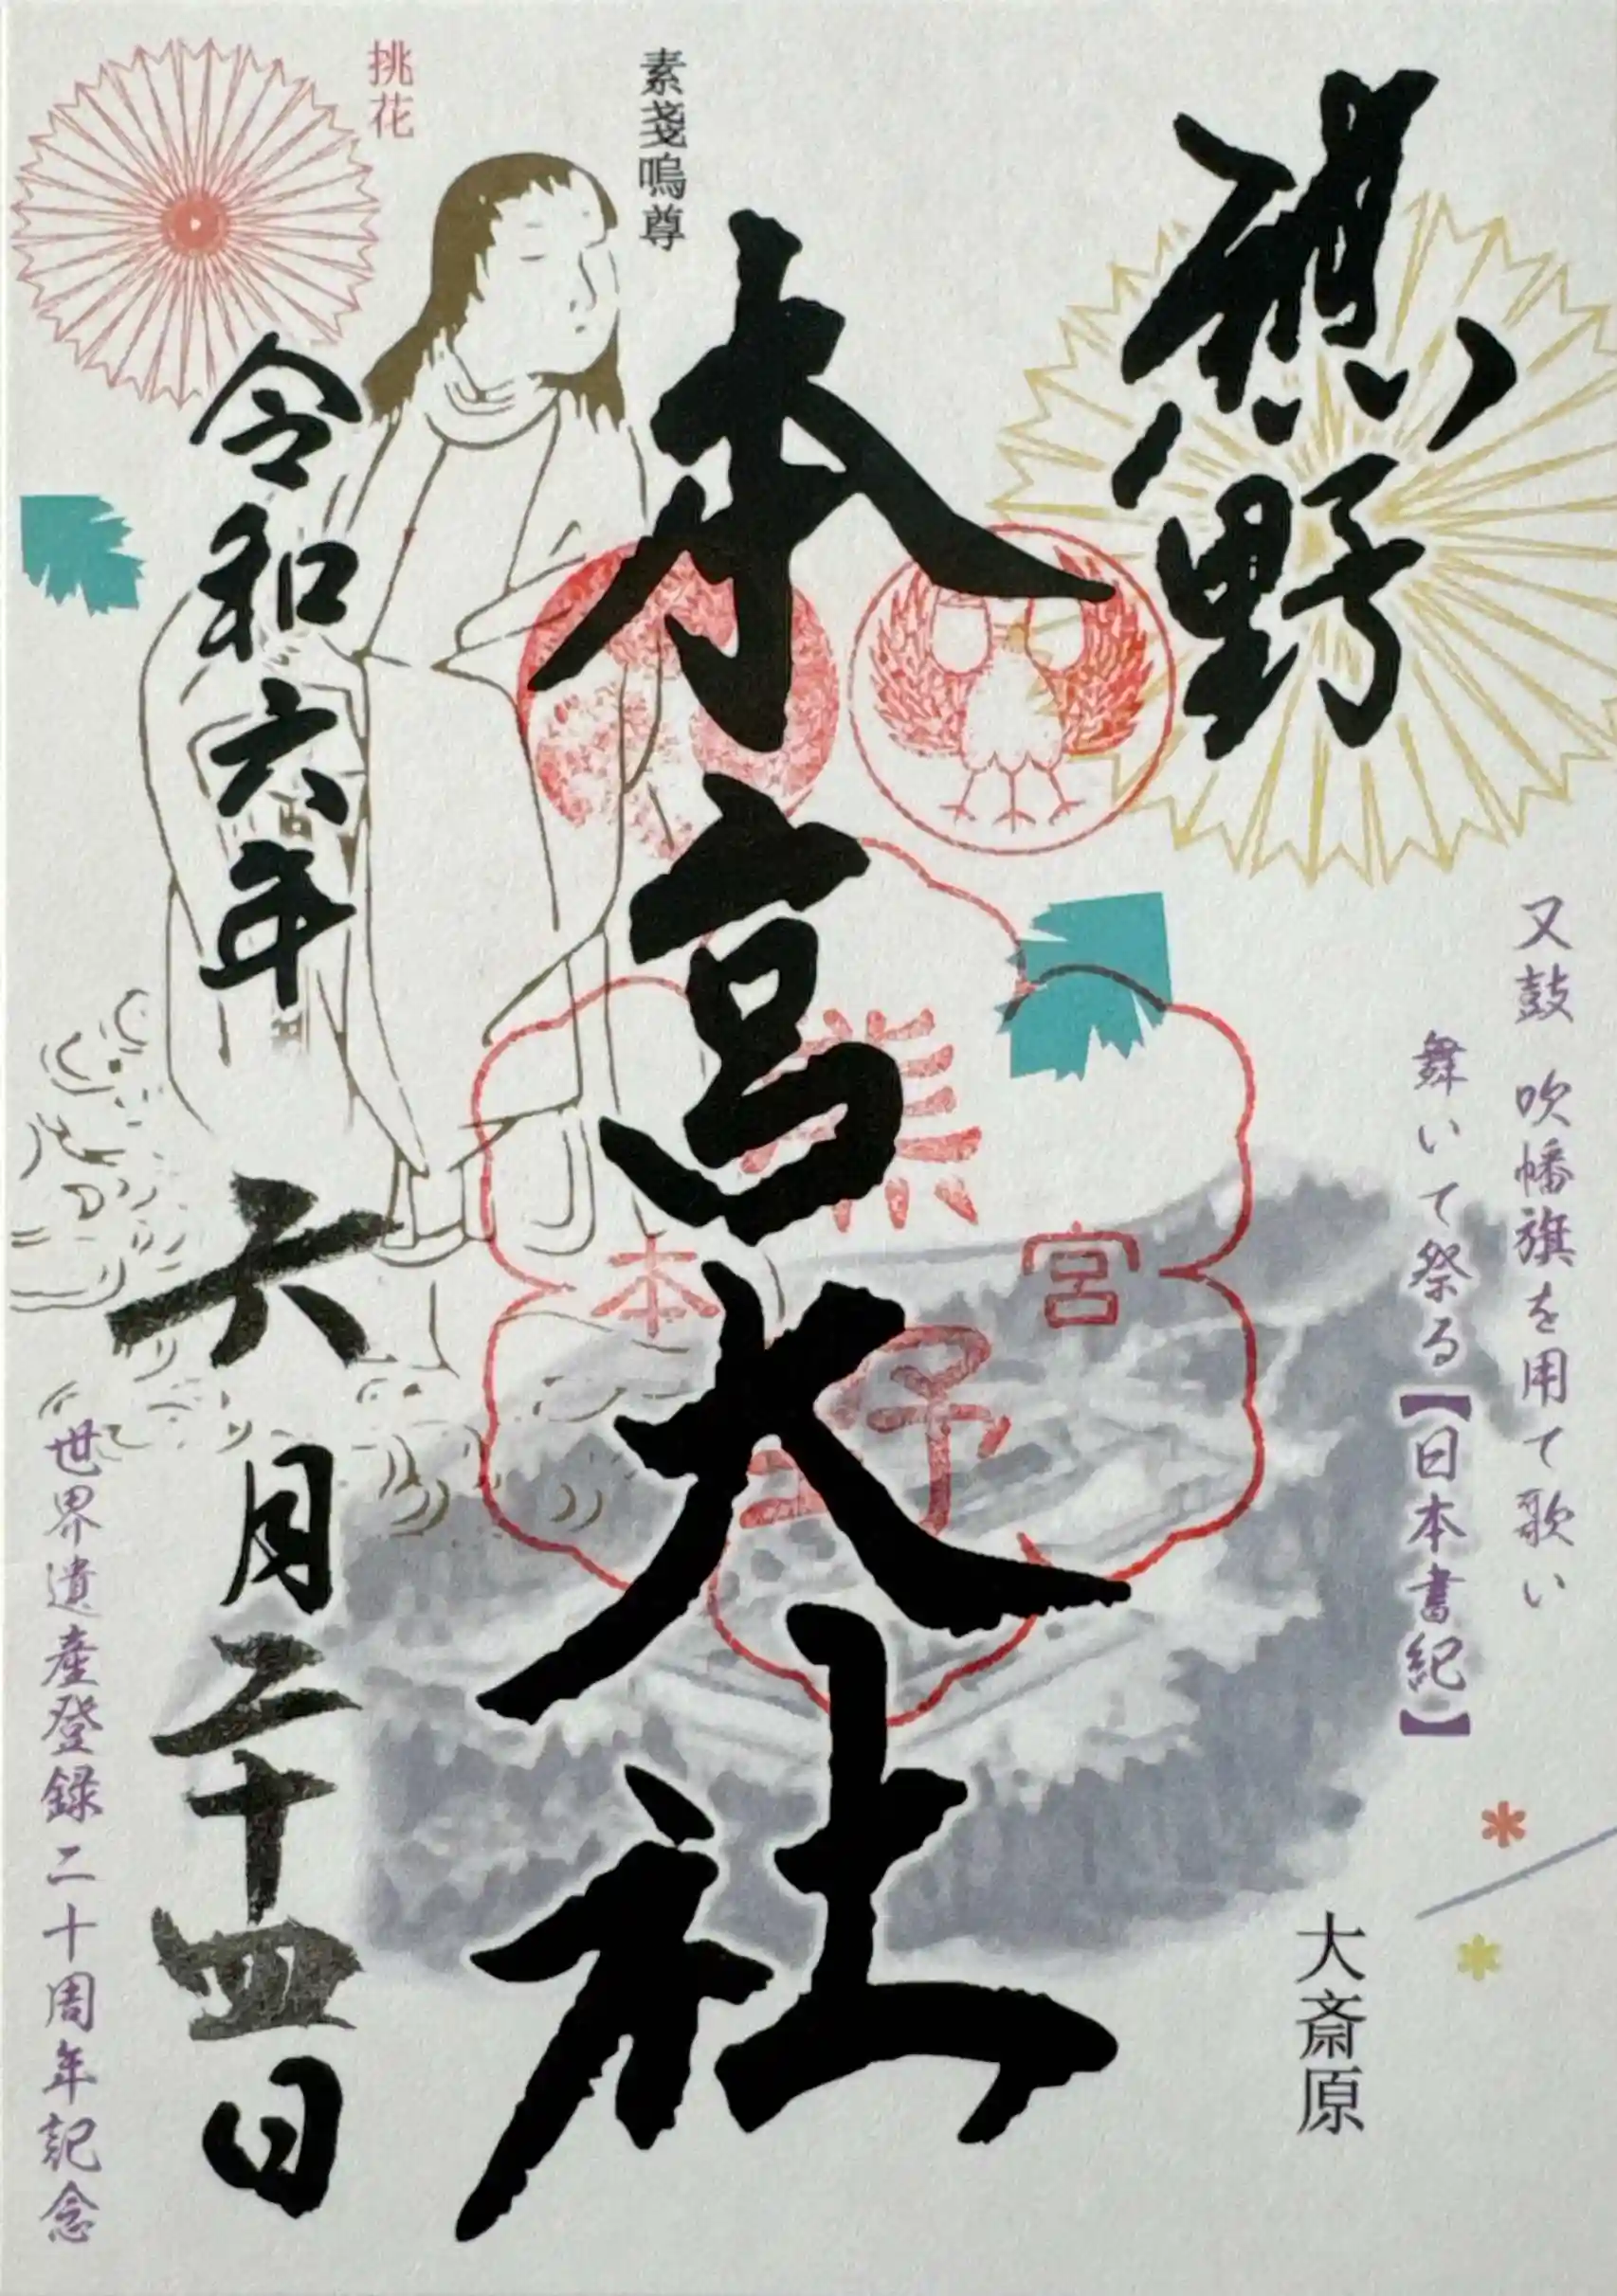 熊野
本宮大社
素戔嗚尊
挑花
令和六年
六月二十四日
又鼓 吹幡旗を用て歌い
舞いて祭る【日本書紀】
大斎原
世界遺産登録二十周年記念
熊
本 宮
野